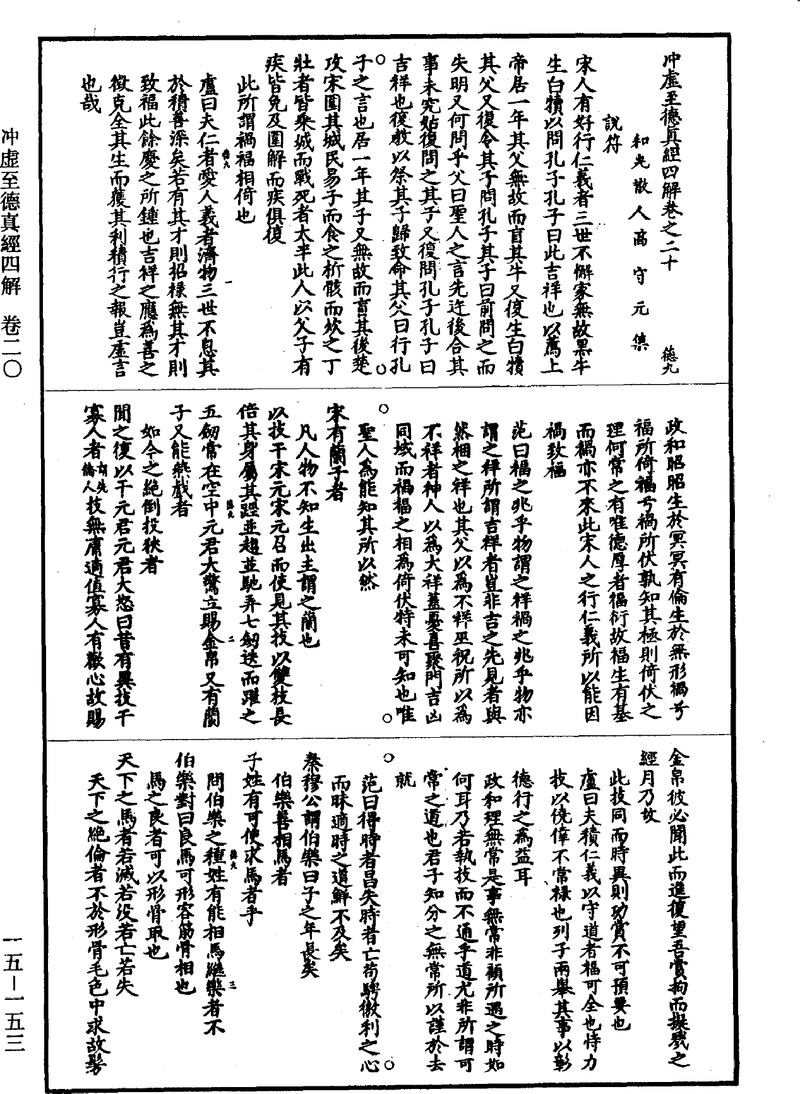 冲虛至德真經四解卷之二十 德九
和光散人高守元集
說符
宋人有好行仁義者三世不懈家無故黑牛
生白犢以問孔子孔子曰此吉祥也以薦上
帝居一年其父無故而盲其牛又復生白犢
其父又復令其子問孔子其子曰前問之而
失明又何問乎父曰聖人之言先迕後合其
事未究姑復問之其子又復問孔子孔子曰
吉祥也復教以祭其子歸致命其父曰行孔
子之言也居一年其子又無故而盲其後楚
攻宋圍其城民易子而食之析骸而炊之丁
壯者皆乘城而戰死者太半此人以父子有
疾皆免及圍解而疾俱復
此所謂禍福相倚也
盧曰夫仁者愛人義者濟物三世不息其
於積善深矣若有其才則招祿無其才則
致福此餘慶之所鍾也吉祥之應為善之
徵克全其生而獲其利積行之報豈虛言
也哉
政和昭昭生於冥冥有倫生於無形禍兮
福所倚福兮禍所伏孰知其極則倚伏之
理何常之有唯德厚者福衍故福生有基
而禍亦不來此宋人之行仁義所以能因
禍致福
范曰福之兆乎物謂之祥禍之兆乎物亦
謂之祥所謂吉祥者豈非吉之先見者與
然梱之祥也其父以為不祥巫祝所以為
不祥者神人以為大祥蓋憂喜聚門吉凶
同域而禍福之相為倚伏特未可知也唯
聖人為能知其所以然
宋有蘭子者
凡人物不知生出主謂之蘭也
以技干宋元宋元召而使見其技以雙枝長
倍其身屬其踁並趨並馳弄七劒迭而躍之
五劒常在空中元君大驚立賜金帛又有蘭
子又能燕戲者
如今之絶倒投狹者
聞之復以干元君元君大怒曰昔有異技干
寡人者 技無庸適值寡人有歡心故賜
金帛彼必聞此而進復望吾賞拘而擬戮之
經月乃放
此技同而時異則功賞不可預要也
盧曰夫積仁義以守道者福可全也恃力
技以僥倖不常祿也列子兩舉其事以彰
德行之為益耳
政和理無常是事無常非顧所遇之時如
何耳乃若執技而不通乎道尤非所謂可
常之道也君子知分之無常所以謹於去
就
范曰得時者昌失時者亡苟騁徼利之心
而昧適時之道鮮不及矣
秦穆公謂伯樂曰子之年長矣
伯樂善相馬者
子姓有可使求馬者乎
問伯樂之種姓有能相馬繼樂者不
伯樂對曰良馬可形容筋骨相也
馬之良者可以形骨取也
天下之馬者若滅若没若亡若失
天下之絶倫者不於形骨毛色中求故髣
冲虛至德真經四解 卷二〇
一五－一五三